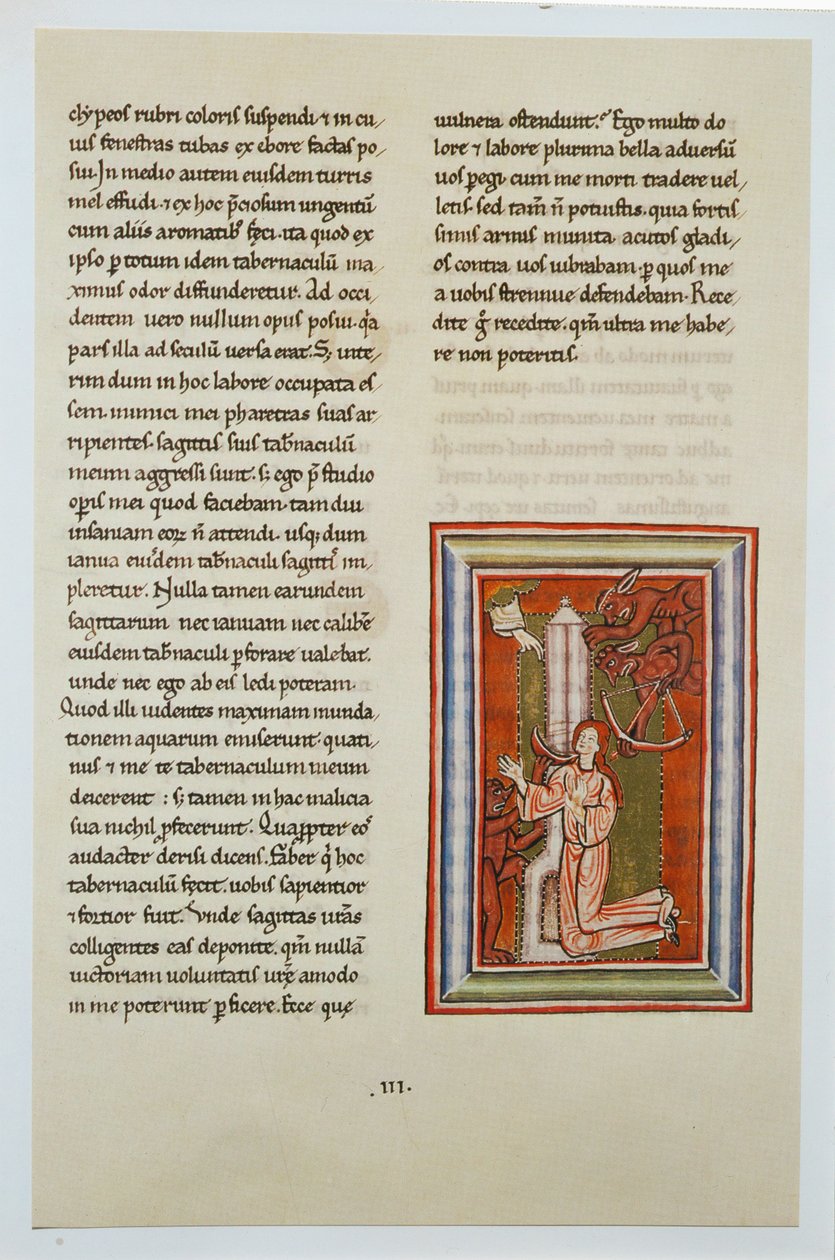 clẏpeos rubri coloris suspendi ⁊ in cu/
ius fenestras tubas ex ebore factas po/
sui. In medio autem euisdem turris
mel effudi. ⁊ ex hoc p̄ciosum ungentū
cum aliis aromatib᷒ feci. ita quod ex
ipso ꝑ totum idem tabernaculū ma/
ximus odor diffunderetur. Ad occi/
dentem uero nullum opus posui. q̇a
pars illa ad seculū uersa erat. S; inte/
rim dum in hoc labore occupata es/
sem. inimici mei pharetras suas ar/
ripientes. sagittis suis tab̄naculū
meum aggressi sunt. s; ego p̄ studio
oꝑis mei quod faciebam. tam diu
insaniam eoꝝ n̄ attendi. usq; dum
ianua euiꝰdem tab̄naculi sagittꝭ im/
pleretur. Nulla tamen earundem
sagittarum nec ianuam nec calibē
euisdem tab̄naculi ꝑforare ualebat.
unde nec ego ab eis ledi poteram.
Quod illi uidentes maximam munda/
tionem aquarum emiserunt. quati/
nus ⁊ me ⁊e tabernaculum meum
deicerent : s; tamen in hac malicia
sua nichil ꝓfecerunt. Quaꝓpter eoˢ
audacter derisi dicens. Faber q̇ hoc
tabernaculū fecit. uobis sapientior
⁊ fortior fuit. Vnde sagittas ur̄as
colligentes eas deponite. qm̄ nullā
uictoriam uoluntatis ur̄e amodo
in me poterunt ꝑficere. Ecce quę
uulnera ostendunt. Ego multo do
lore ⁊ labore plurima bella aduersū
uos ꝑegi. cum me morti tradere uel/
letis. sed tam̄ n̄ potuistis. quia fortis/
simis armis munita. acutos gladi/
os contra uos uibrabam. ꝑ quos me
a uobis strennue defendebam. Rece/
dite g̊ recedite. qm̄ ultra me habe/
re non poteritis.
.III.